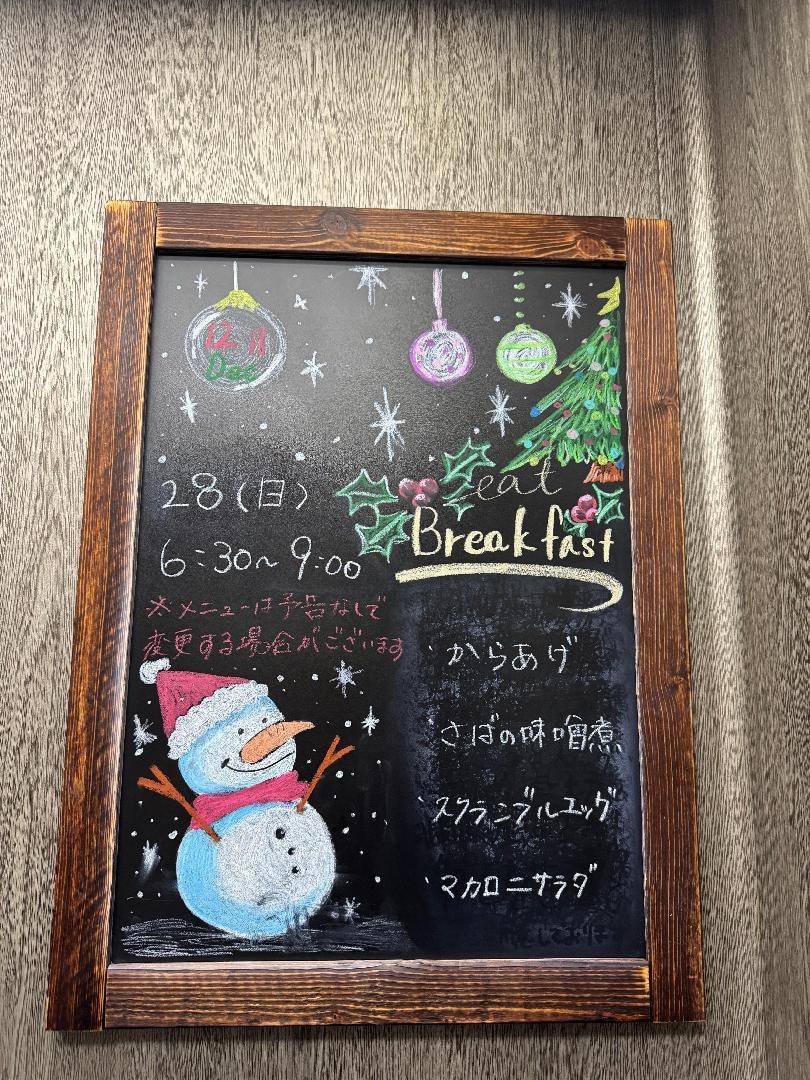 12月
Dec
28(日)
6:30~9:00
※メニューは予告なしで
変更する場合がございます
eat
Breakfast
・からあげ
・さばの味噌煮
・スクランブルエッグ
・マカロニサラダ